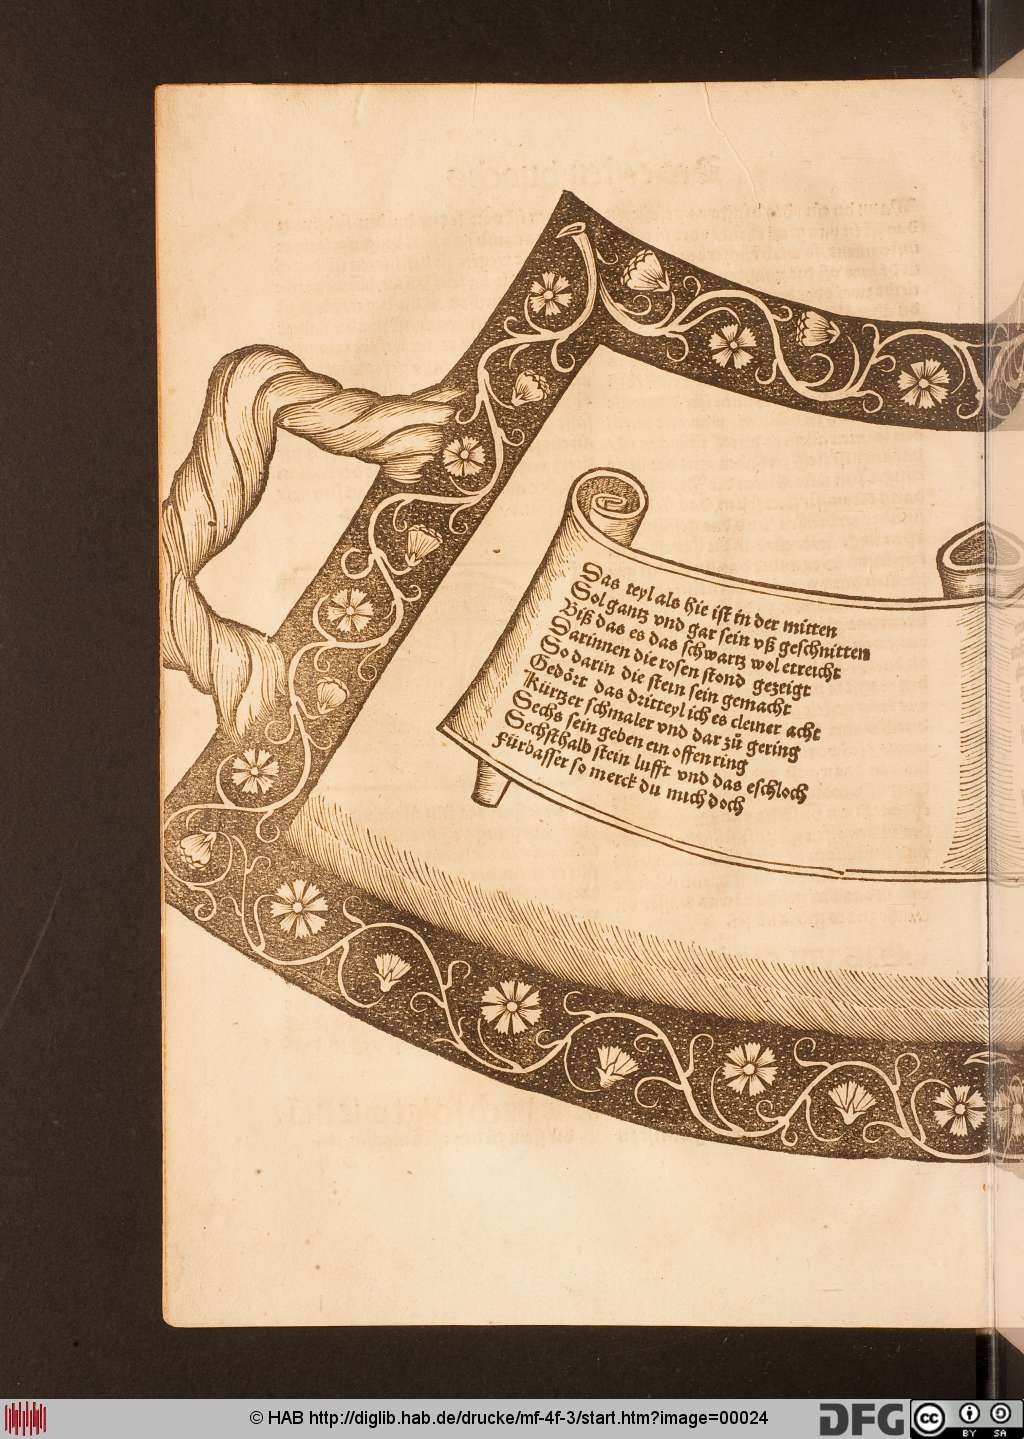 Das teyl als hie ist in der mitten
Sol gantz vnd gar sein vß geschnitten
Biß das es das schwartz wol erreicht
Darinnen die rosen stond gezeigt
So darin die stein sein gemacht
Gedört das dritteyl ich es cleiner acht
Kürtzer schmaler vnd dar zů gering
Sechs sein geben ein offen ring
Sechsthalb stein lufft vnd das eschloch
Fürbasser so merck du mich doch
© HAB http://diglib.hab.de/drucke/mf-4f-3/start.htm?image=00024
DFG
cc
BY SA